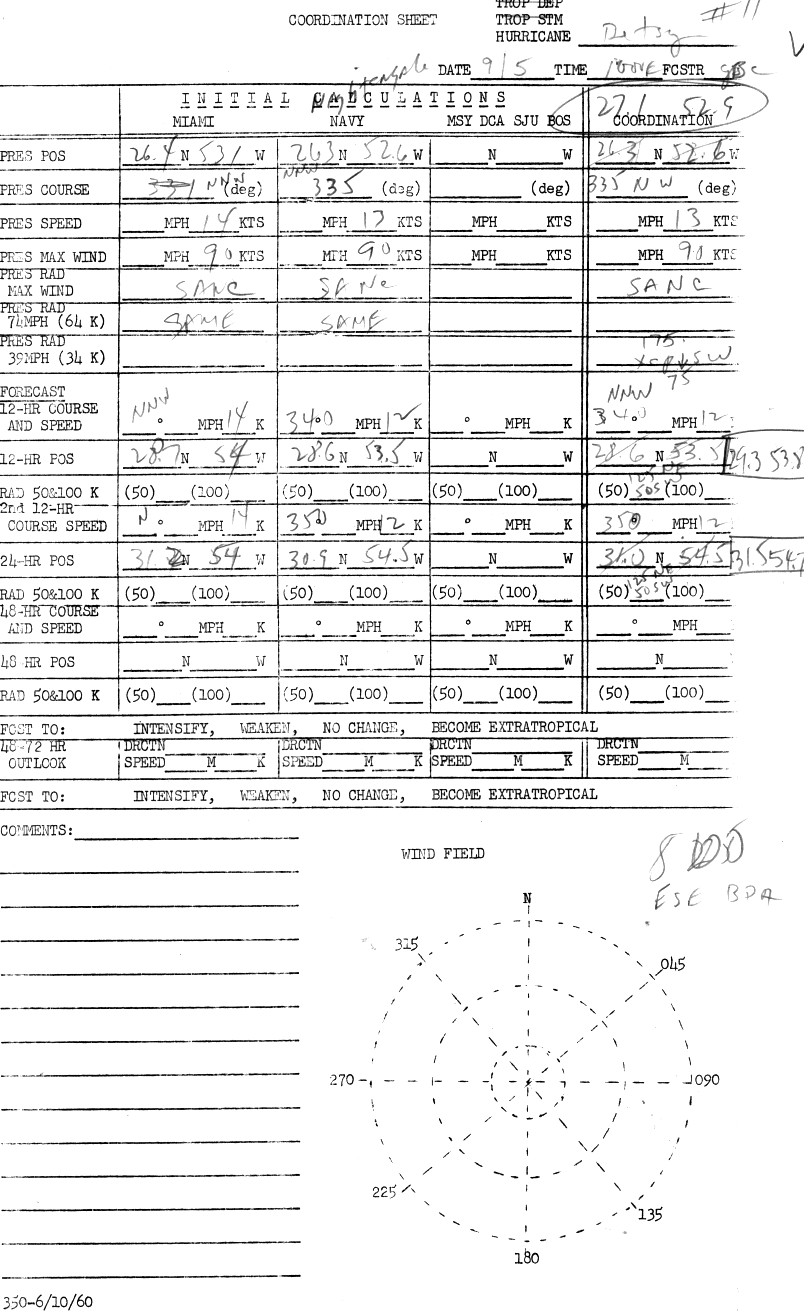 TROP DEP
COORDINATION SHEET TROP STM #11
HURRICANE Betsy
DATE 9/5 TIME 1000E FCSTR
INITIAL CALCULATIONS 27.1 52.9
MIAMI NAVY MSY DCA SJU BOS COORDINATION
PRES POS 26.4 N 53.1 W 26.3 N 52.6 W N W 26.3 N 52.6 W
PRES COURSE 331 NNW (deg) NNW 335 (deg) (deg) 335 NW (deg)
PRES SPEED MPH 14 KTS MPH 13 KTS MPH KTS MPH 13 KTS
PRES MAX WIND MPH 90 KTS MPH 90 KTS MPH KTS MPH 90 KTS
PRES RAD
MAX WIND SAME SAME SAME
PRES RAD
74MPH (64 K) SAME SAME
PRES RAD 175
39MPH (34 K) SW
FORECAST NNW 75
12-HR COURSE NNW
AND SPEED ° MPH 14 K 340° MPH 12 K ° MPH K 340 ° MPH 12
12-HR POS 28.7 N 54 W 28.6 N 53.5 W N W 28.6 N 53.5 29.3 53.8
125 NE
RAD 50&100 K (50) (100) (50) (100) (50) (100) (50) 50SW (100)
2nd 12-HR
COURSE SPEED N ° MPH 14 K 350 MPH 12 K ° MPH K 350 MPH 12
24-HR POS 31.2 N 54 W 30.9 N 54.5 W N W 31.0 N 54.5 31.5 54.7
125 NE
RAD 50&100 K (50) (100) (50) (100) (50) (100) (50) 50SW (100)
48-HR COURSE
AND SPEED ° MPH K ° MPH K ° MPH K ° MPH
48-HR POS N W N W N W N
RAD 50&100 K (50) (100) (50) (100) (50) (100) (50) (100)
FCST TO: INTENSIFY, WEAKEN, NO CHANGE, BECOME EXTRATROPICAL
48-72 HR DRCTN DRCTN DRCTN DRCTN
OUTLOOK SPEED M K SPEED M K SPEED M K SPEED M
FCST TO: INTENSIFY, WEAKEN, NO CHANGE, BECOME EXTRATROPICAL
COMMENTS:
WIND FIELD
ESE BDA
N
315
045
270
090
225
135
180
350-6/10/60